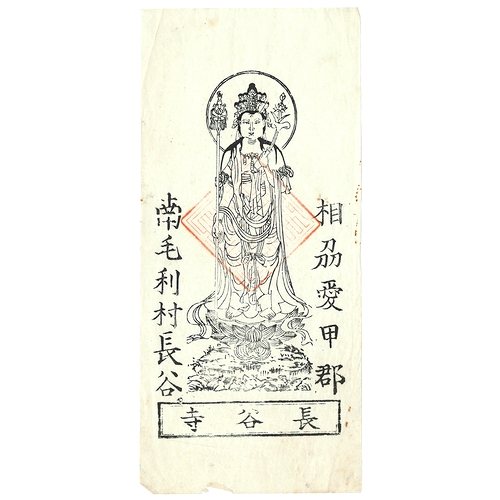 相刕愛甲郡
南毛利村長谷
長谷寺